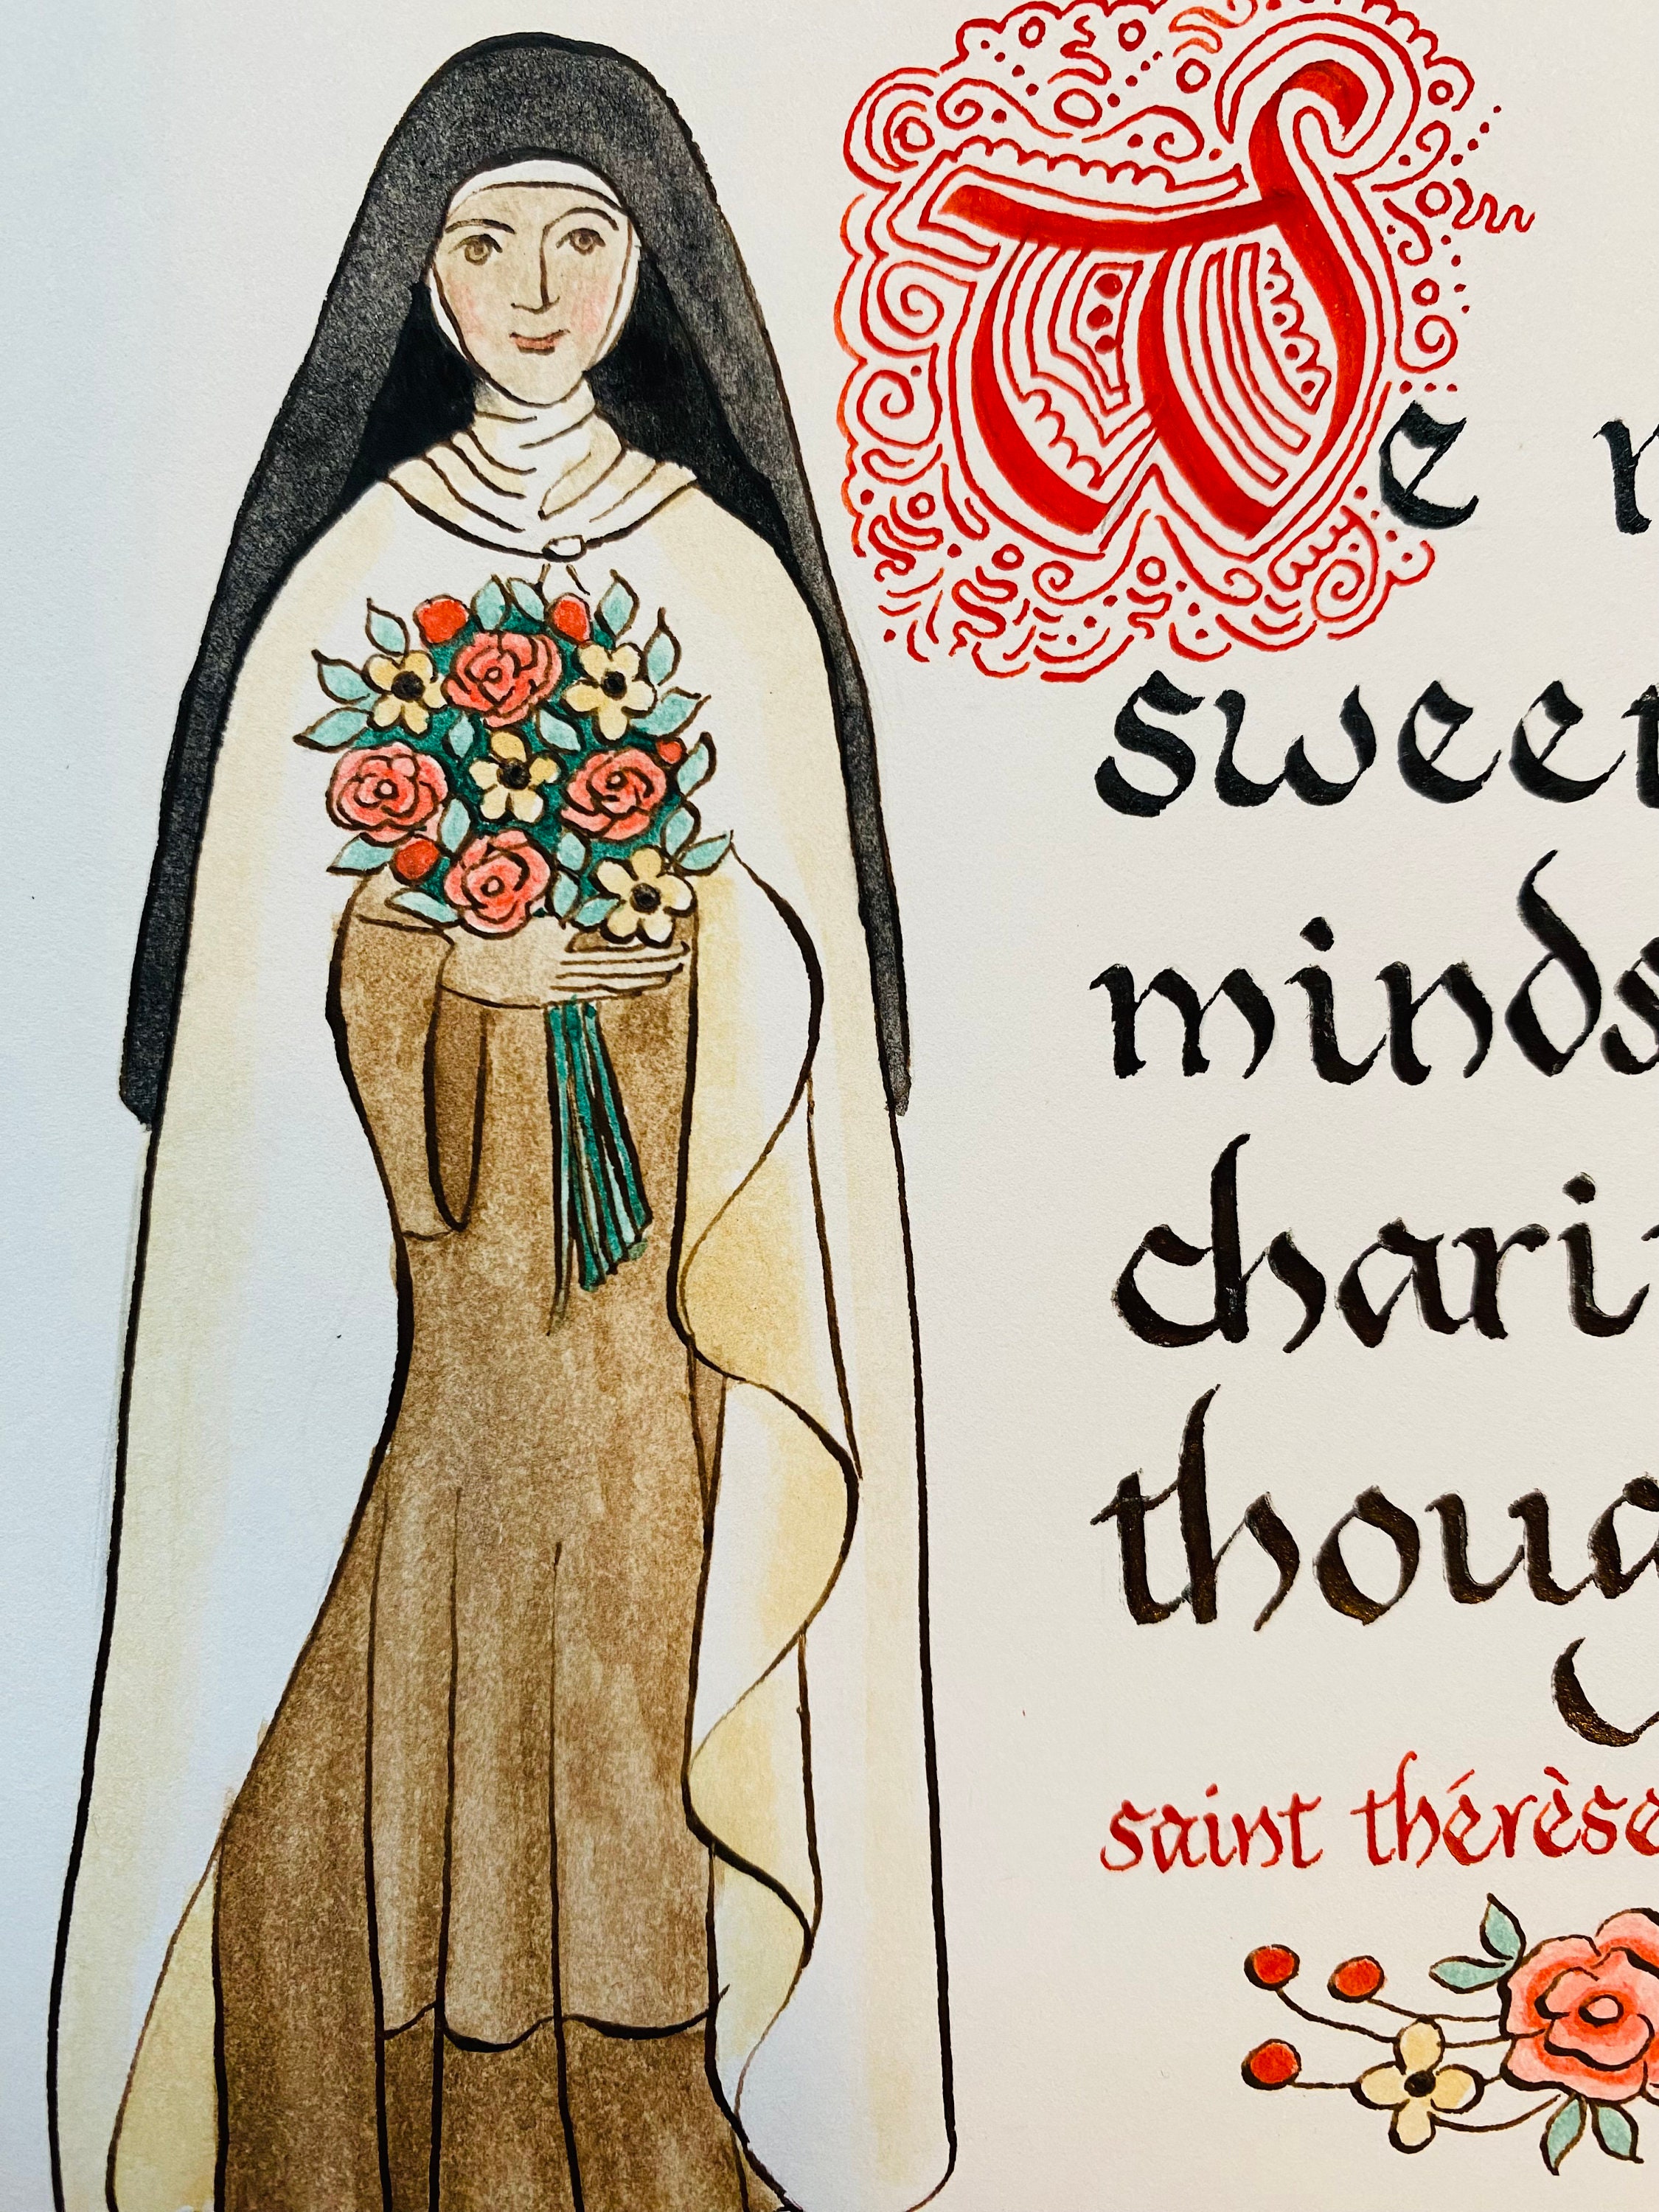 We
sweet
minds
chari
thoug
saint thérèse